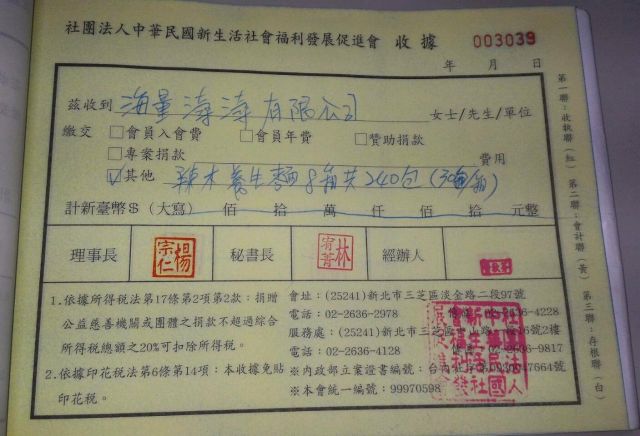 社團法人中華民國新生活社會福利發展促進會 收據 003039
年 月 日
茲收到 海量濤濤有限公司 女士/先生/單位
繳交 □會員入會費 □會員年費 □贊助捐款
□專案捐款 費用
☑其他 辣木養生麵8箱共240包(30包/箱)
計新臺幣$(大寫) 佰 拾 萬 仟 佰 拾 元整
理事長 楊宗仁 秘書長 林宥菁 經辦人
1.依據所得稅法第17條第2項第2款:捐贈
公益慈善機關或團體之捐款不超過綜合
所得稅總額之20%可扣除所得稅。
2.依據印花稅法第6條第14項:本收據免貼
印花稅。
會址:(25241)新北市三芝區淡金路二段97號
電話:02-2636-2978 02-2636-4228
服務處:(25241)新北市三芝區 路 16號2樓
電話:02-2636-4128 02-2636-9817
※內政部立案證書編號:台內社字第0930047664號
※本會統一編號:99970598
第一聯:收執聯(紅) 第二聯:會計聯(黃) 第三聯:存根聯(白)